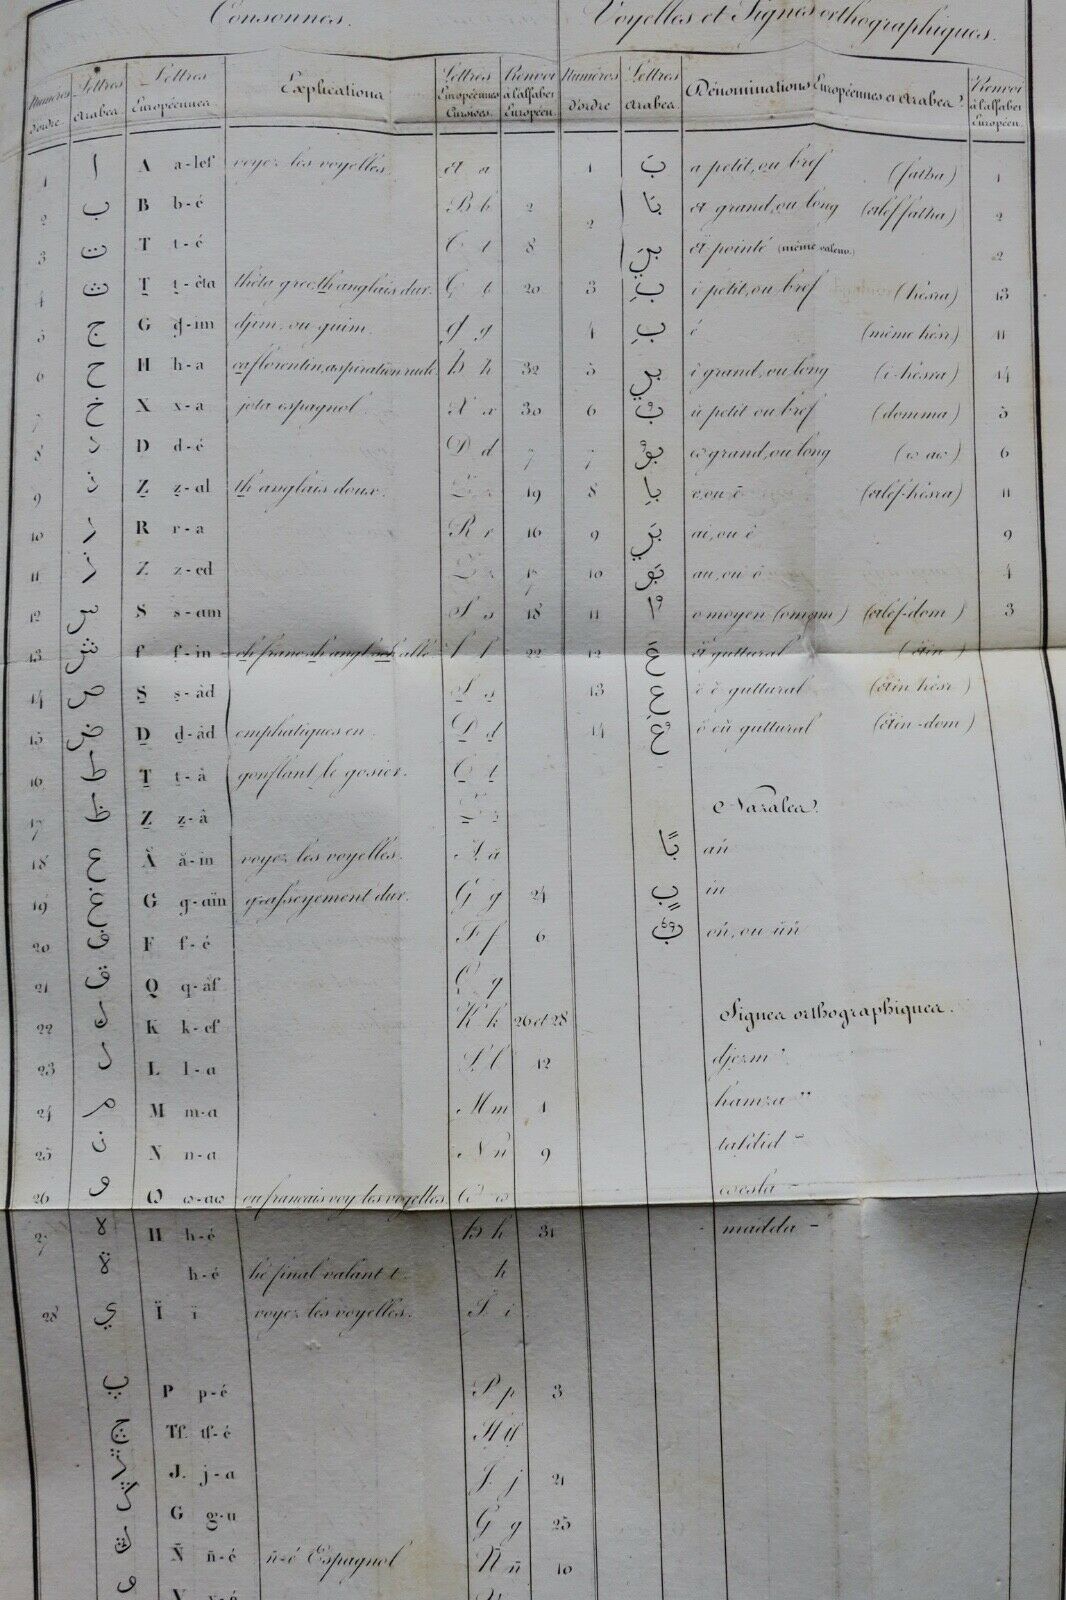 Consonnes. Voyelles et Signes orthographiques.
Numéros d'ordre Lettres Arabes Lettres Européennes Explications Lettres Européennes Cursives. Renvoi à l'alfabet Européen. Numéros d'ordre Lettres Arabes. Dénominations Européennes et Arabes. Renvoi à l'alfabet Européen.
1 ا A a-lef voyez les voyelles. A a 1 بَ a petit, ou bref (fatha) 1
2 ب B b-é B b 2 2 بَا A grand, ou long (alef fatha) 2
3 ت T t-é T t 8 بَيَ A pointé (même valeur.) 2
4 ث Ṯ ṯ-êta thêta grec, th anglais dur. Ṯ ṯ 20 3 بِ i petit, ou bref (hèsra) 13
5 ج G g-im djim, ou guim. G g 4 بِ é (même hèsr) 11
6 ح H h-a ca florentin, aspiration rude. H h 32 5 بِي i grand, ou long (i-hèsra) 14
7 خ X x-a jota espagnol X x 30 6 بُ u petit ou bref (domma) 5
8 د D d-é D d 7 7 بُو ω grand, ou long (ω aω) 6
9 ذ Ẕ ẕ-al th anglais doux. 19 8 بِا e, ou ē (alef-hèsra) 11
10 ر R r-a R r 16 9 بَي ai, ou ê 9
11 ز Z z-ed 17 10 بَو au, ou ô 4
12 س S s-am S s 18 11 اُ o moyen (omam) (alef-dom) 3
13 ش ſ ſ-in ch franc. sh angl. sch allé. ſ ſ 22 12 عَ guttural
14 ص S̱ s̱-âd S s 13 عِ guttural (äïn hèsr)
15 ض Ḏ ḏ-âd emphatiques en D d 14 عُ guttural (äïn-dom)
16 ط Ṯ ṯ-â gonflant le gosier. T t
17 ظ Ẕ ẕ-â Nazales.
18 ع Å å-in voyez les voyelles. A a بًا añ
19 غ G g-aïn grasseyement dur. G g 24 بٍ in
20 ف F f-é F f 6 بٌ oñ, ou üñ
21 ق Q q-âf Q q
22 ك K k-ef K k 26 et 28 Signes orthographiques.
23 ل L l-a L l 12 djezm
24 م M m-a M m 1 hamza
25 ن N n-a N n 9 taſdid
26 و Ω ω-aω ou français voy. les voyelles. Ω ω ωesla
27 ه H h-é H h 31 mädda
ة h-é hé final valant t. h
28 ي Ï ï voyez les voyelles. I i
پ P p-é P p 3
چ Tſ. tſ-é Tſ tſ
J. j-a J. j 21
G g-u G g 25
Ñ ñ-é ñ-é Espagnol Ñ ñ 10
و V v-é